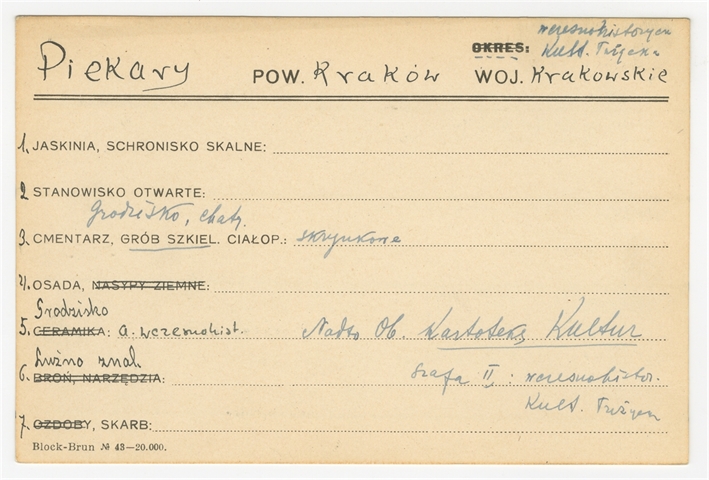 wczesnohistorycz
OKRES: Kult. Łużycka
Piekary POW. Kraków WOJ. Krakowskie
1. JASKINIA, SCHRONISKO SKALNE:
2 STANOWISKO OTWARTE:
Grodzisko, chaty.
3. CMENTARZ, GRÓB SZKIEL. CIAŁOP.: skrzynkowe
4. OSADA, NASYPY ZIEMNE:
Grodzisko
5. CERAMIKA: a. wczesnohist. Nadto Ob. Kartoteka Kultur
Luźno znal.
6. BROŃ, NARZĘDZIA: Szafa II. wczesnohistor.
Kult. Łużycka
7. OZDOBY, SKARB:
Block-Brun № 43—20.000.